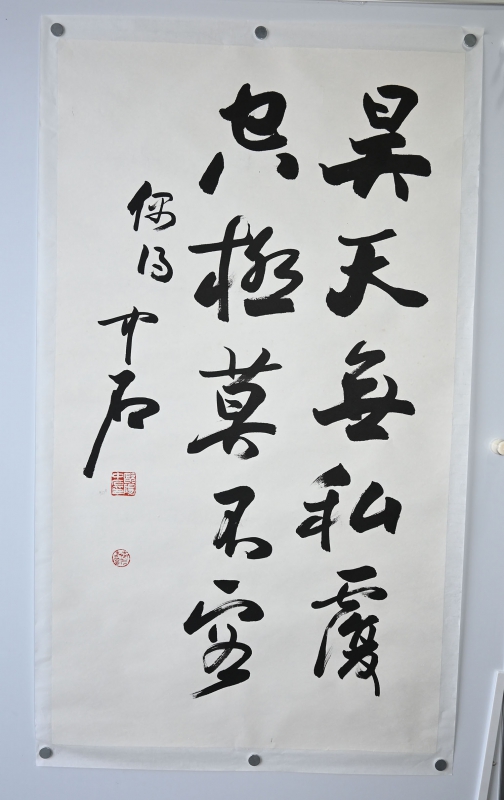 昊天無私覆
極莫不容
偶得 中石